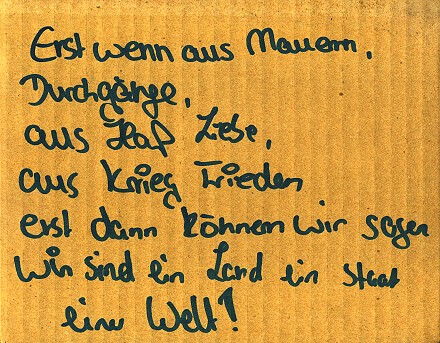 Erst wenn aus Mauern,
Durchgänge,
aus Haß Liebe,
aus Krieg Frieden
erst dann können wir sagen
Wir sind ein Land ein Staat
eine Welt!